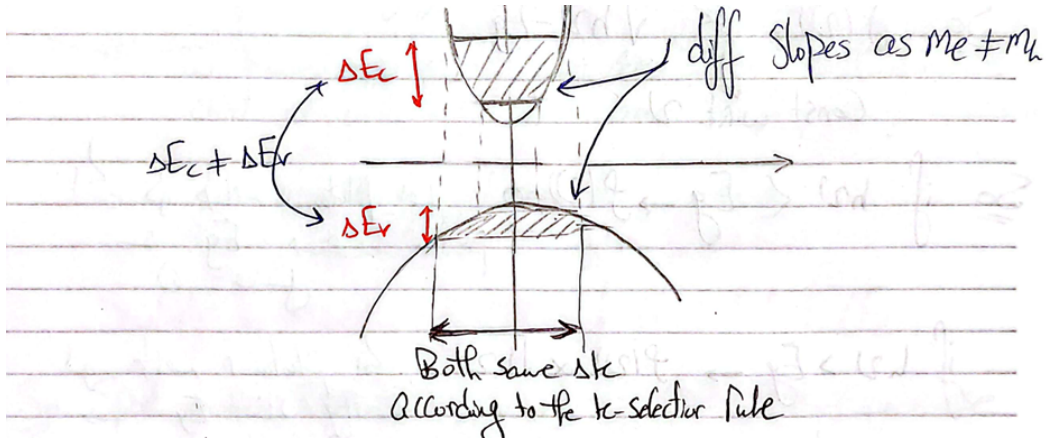 ΔEc
diff slopes as me ≠ mh
ΔEc ≠ ΔEv
ΔEv
Both same Δk
According to the k-selection rule